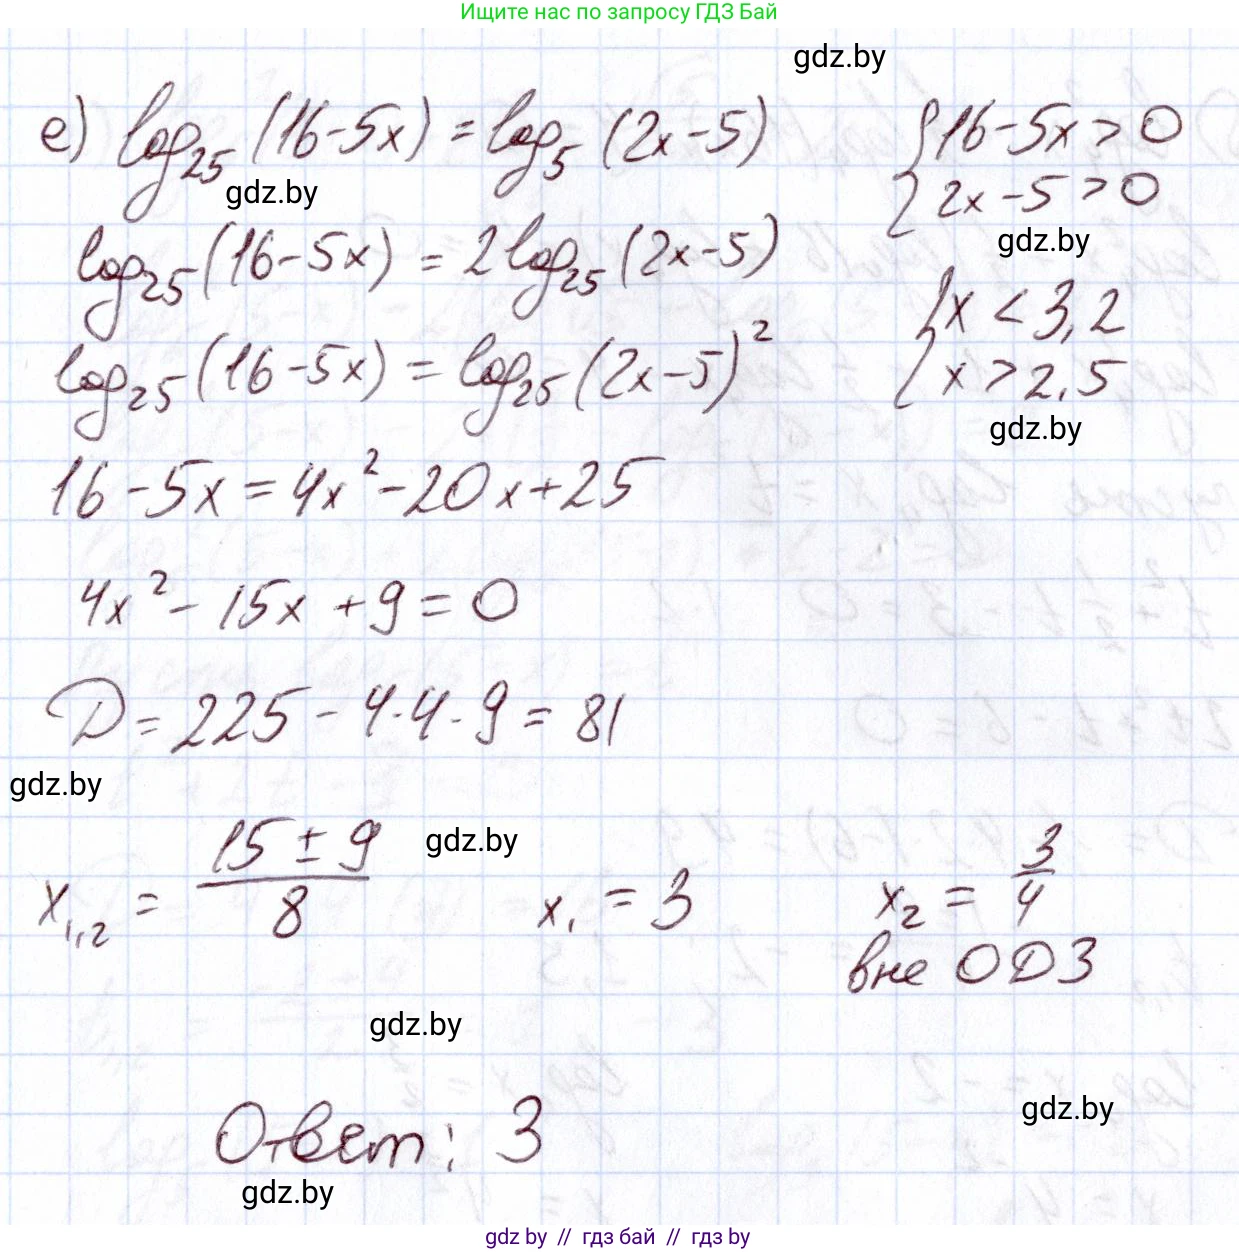 Ищите нас по запросу ГДЗ Бай
gdz.by
е) log₂₅ (16-5x) = log₅ (2x-5)
{ 16-5x > 0
2x-5 > 0
gdz.by
gdz.by
log₂₅ (16-5x) = 2log₂₅ (2x-5)
{ x < 3,2
x > 2,5
log₂₅ (16-5x) = log₂₅ (2x-5)²
gdz.by
16-5x = 4x²-20x+25
4x² - 15x + 9 = 0
D = 225 - 4·4·9 = 81
gdz.by
x₁,₂ = (15 ± 9)/8
gdz.by
x₁ = 3
x₂ = 3/4
вне ОДЗ
gdz.by
gdz.by
Ответ: 3
gdz.by
gdz by // гдз бай // гдз by